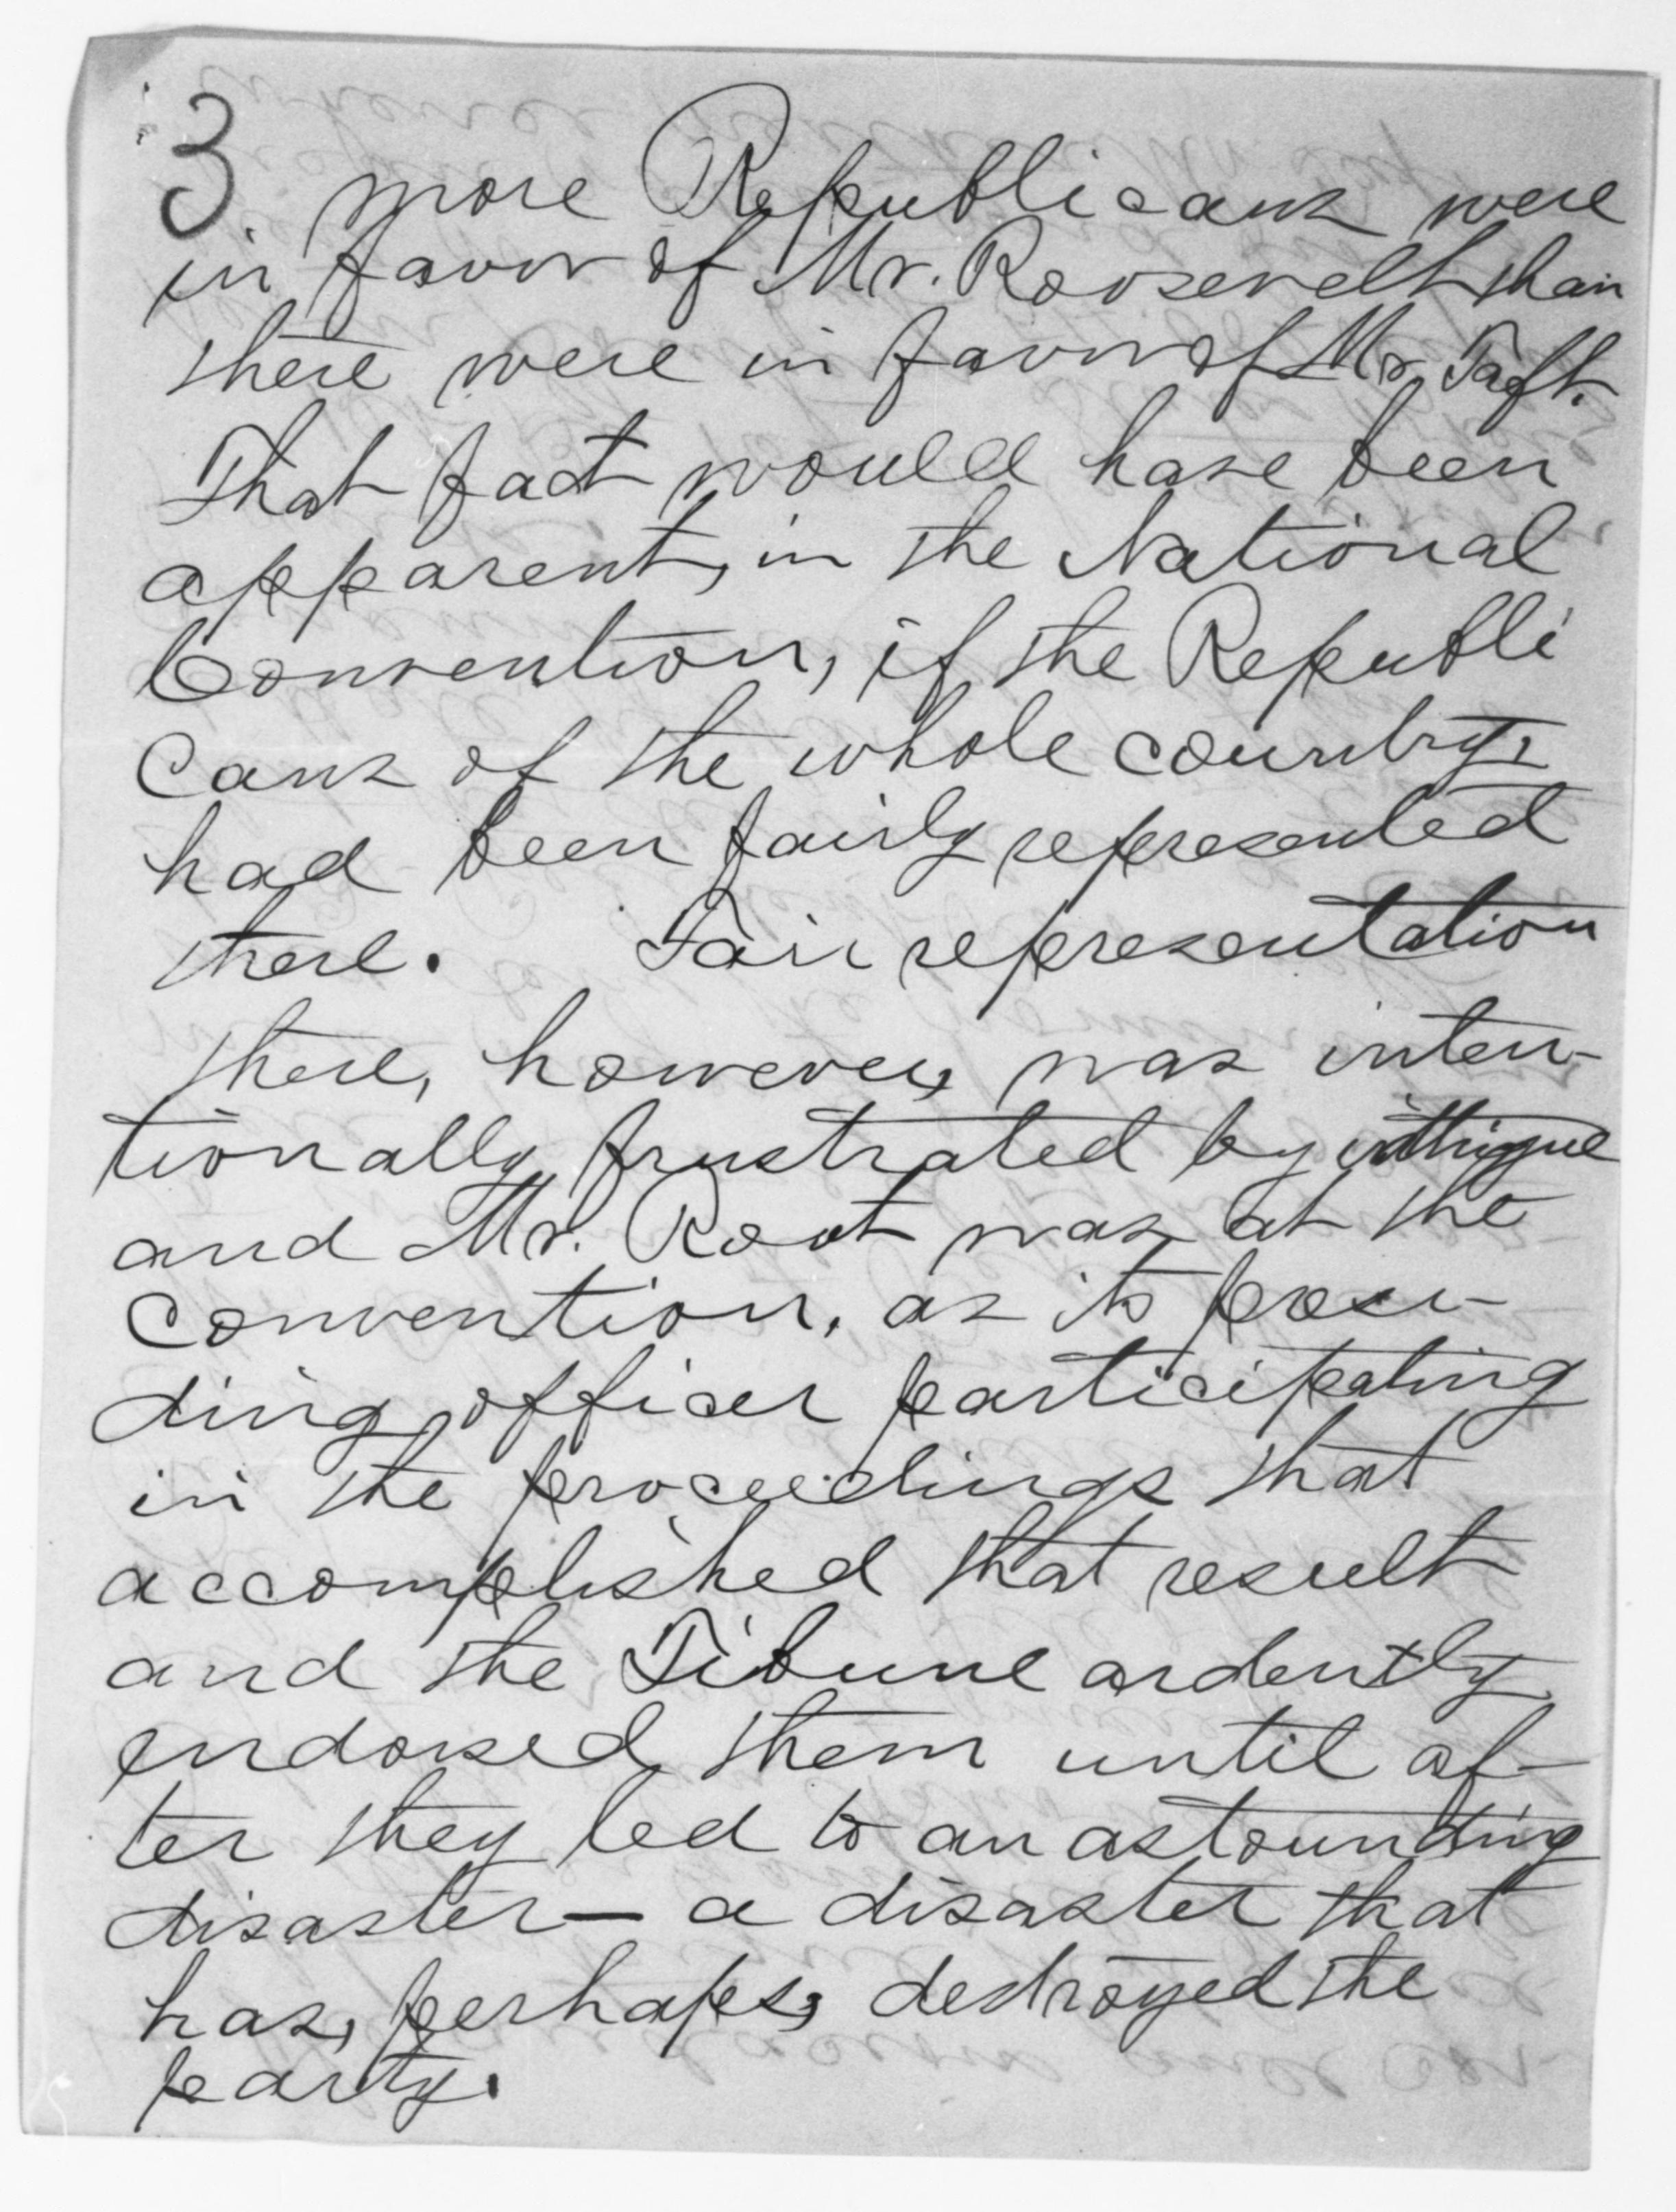 3 more Republicans were
in favor of Mr. Roosevelt than
there were in favor of Mr. Taft.
That fact would have been
apparent, in the National
Convention, if the Republi
cans of the whole country,
had been fairly represented
there. Fair representation
there, however, was inten-
tionally frustrated by intrigue
and Mr. Root was at the
convention, as its presi-
ding officer participating
in the proceedings that
accomplished that result
and the Tibune ardently
endorsed them until af-
ter they led to an astounding
disaster — a disaster that
has, perhaps, destroyed the
party.